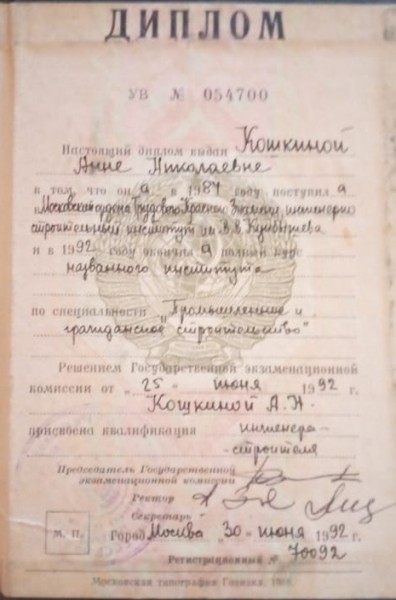 ДИПЛОМ
УВ № 054700
Настоящий диплом выдан Кошкиной
Анне Николаевне
в том, что он а в 1987 году поступил а
в Московский ордена Трудового Красного Знамени инженерно
строительный институт им. В.В. Куйбышева
и в 1992 году окончил а полный курс
названного института
по специальности „Промышленное и
гражданское строительство"
Решением Государственной экзаменационной
комиссии от „ 25 " июня 1992 г.
Кошкиной А.Н.
присвоена квалификация инженера-
-строителя
Председатель Государственной
экзаменационной комиссии
Ректор
Секретарь
М. П. Город Москва 30 июня 1992 г.
Регистрационный № 70092
Московская типография Гознака.